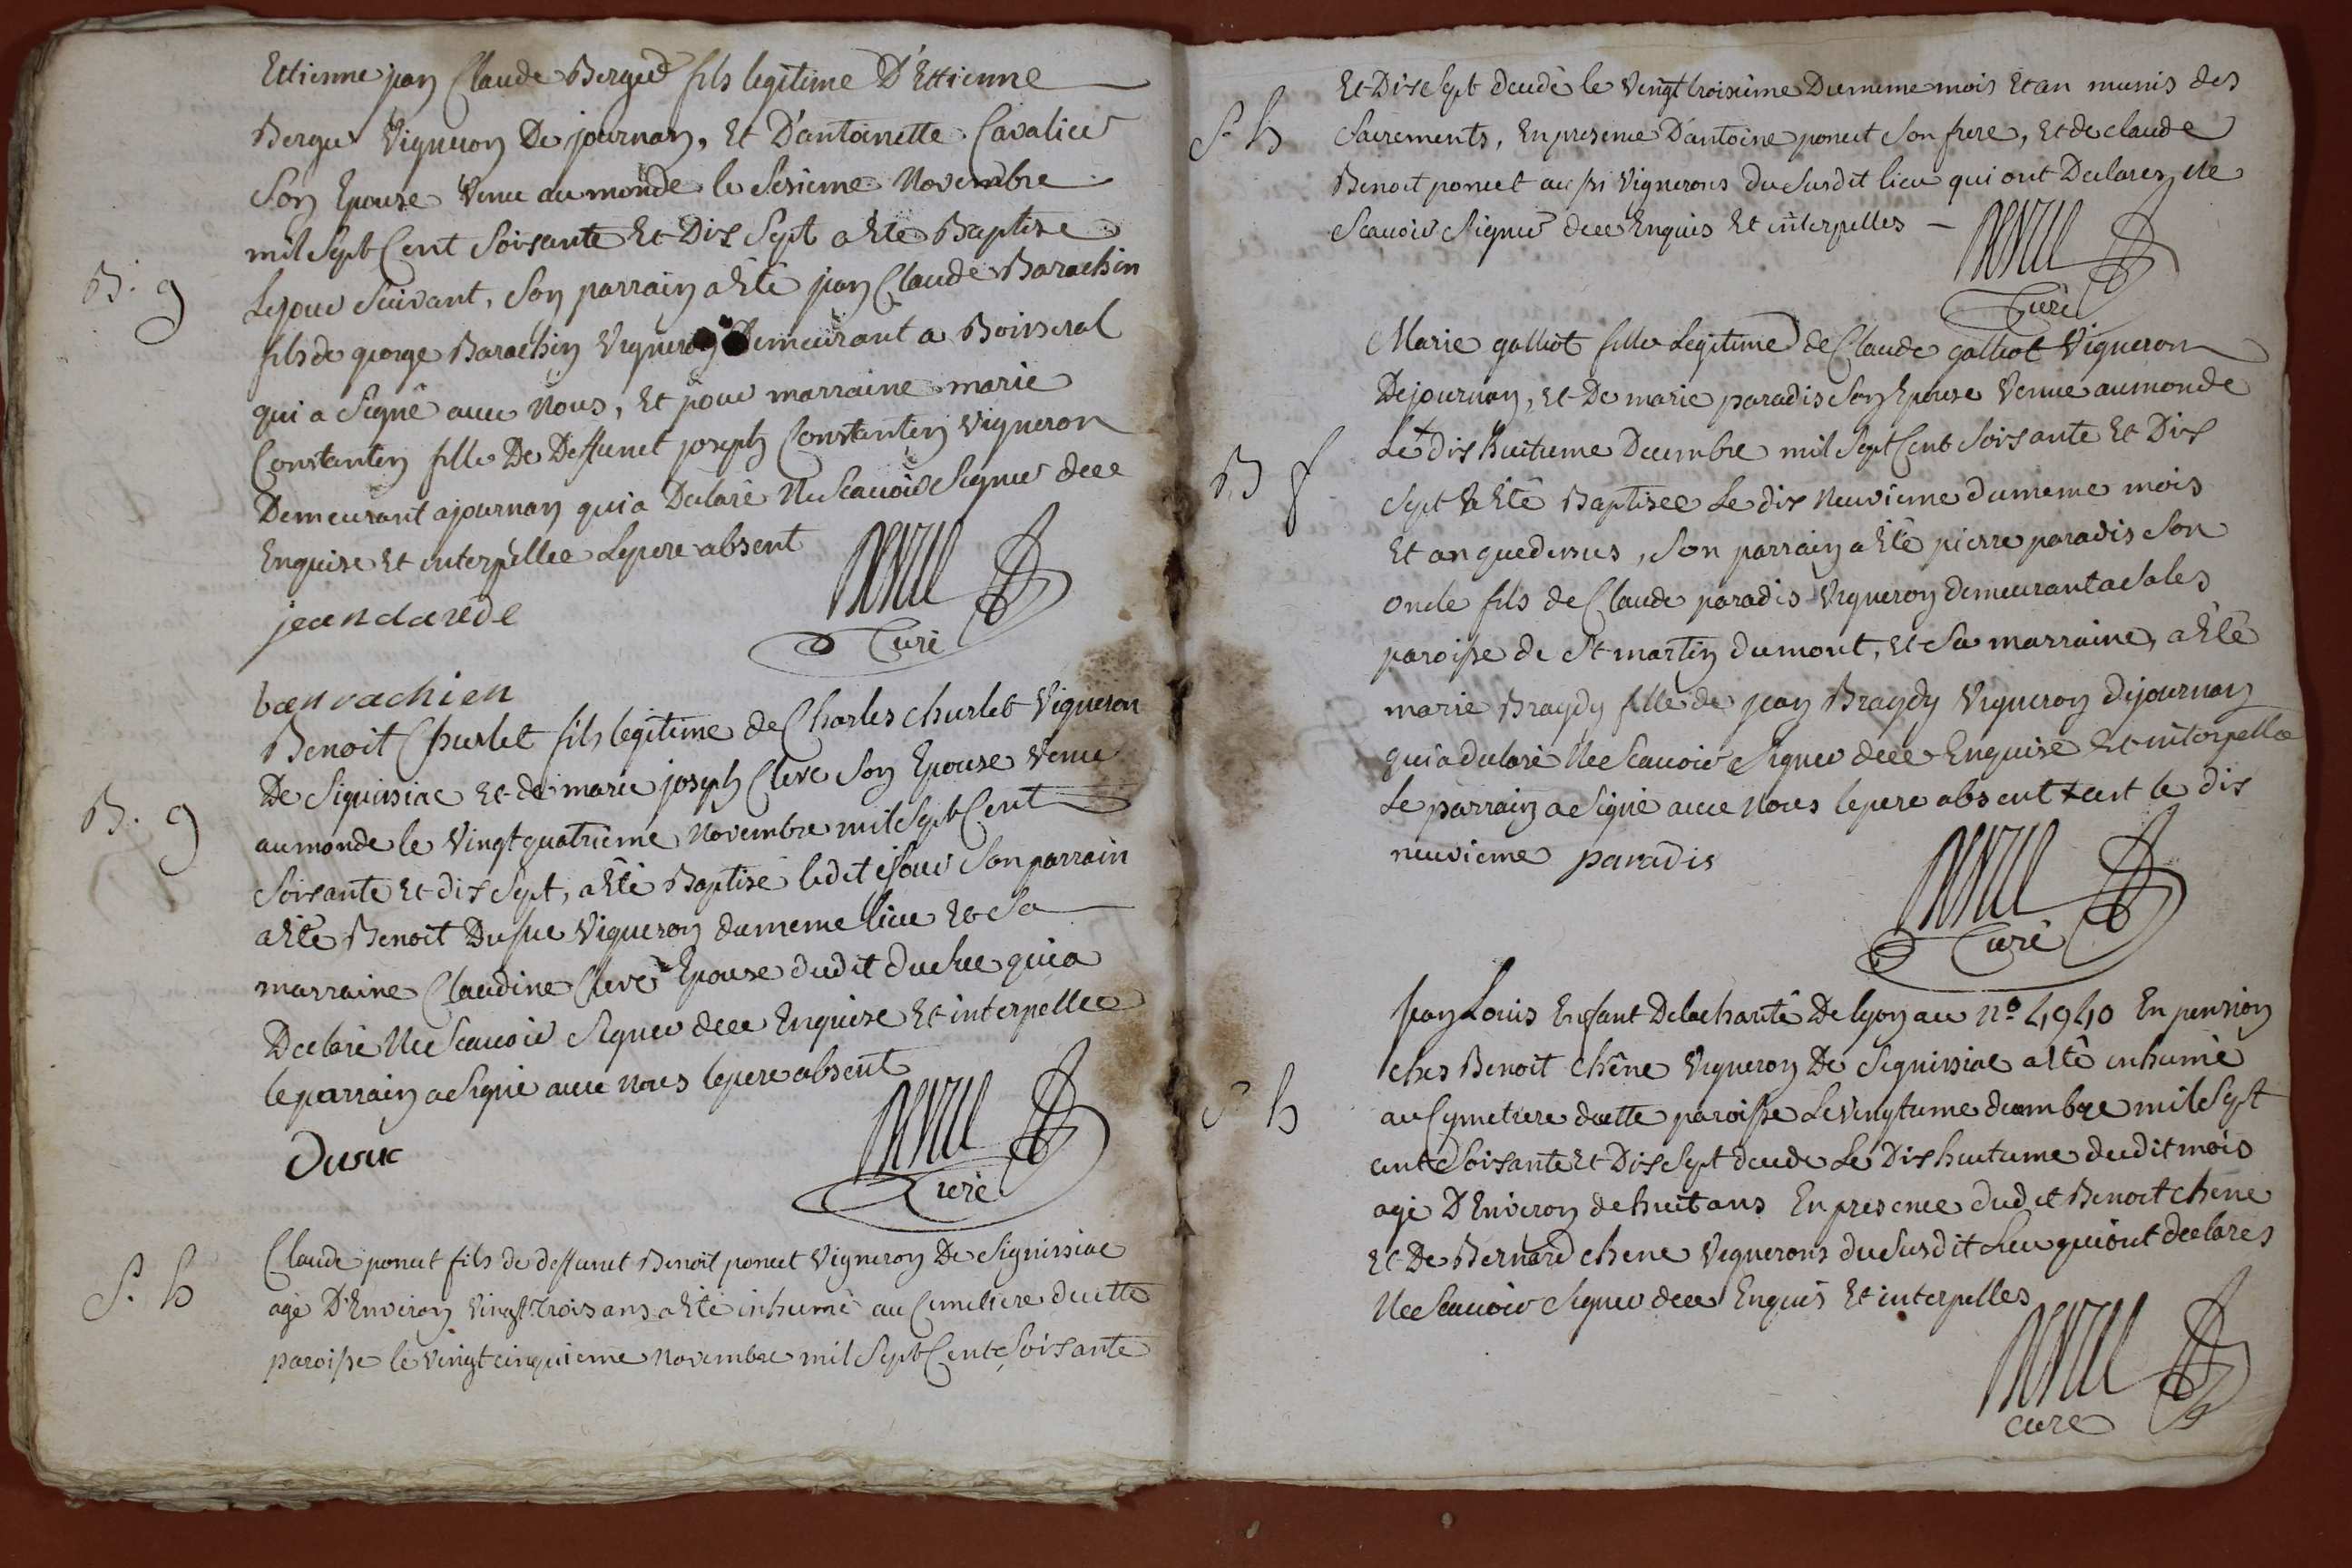 Ettienne jean Claude Berger fils legitime D'Ettienne
Berger Vigneron De journan, Et D'antoinette Cavalier
Son Epouse Venu au monde le Sesieme Novembre
mil Sept Cent Soisante Et Dix Sept a Eté Baptise
B. g Le jour Suivant, Son parrain a Eté jean Claude Barachin
fils de george Barachin Vigneron Demeurant a Boisseral
qui a Signé avec Nous, Et pour marraine marie
Constantin fille De Deffunct joseph Constantin Vigneron
Demeurant a journan qui a Declaré Ne Scavoir Signer dece
Enquise Et interpellee Le pere absent
jean claude
barrachien
Curé
Benoit Churlet fils legitime de Charles churlet Vigneron
De Siguissiac Et de marie joseph Clere Son Epouse Venu
B. g au monde le Vingt quatrieme Novembre mil Sept Cent
Soisante Et dix Sept, a Eté Baptisé le dit jour Son parrain
a Eté Benoit Dusuc Vigneron du meme lieu Et Sa
marraine Claudine Clere Epouse dudit dusuc qui a
Declaré Ne Scavoir Signer dece Enquise Et interpellee
le parrain a Signé avec nous le pere absent
Dusuc
Curé
Claude poncet fils de deffunct Benoit poncet Vigneron De Siguissiac
S. h agé D'Environ Vingt Trois ans a Eté inhumé au Cimetiere de cette
paroisse le Vingt cinquieme Novembre mil Sept Cent Soisante
Et Dix Sept decedé le Vingt troisieme Du meme mois Et an munis des
S. h Sacrements, En presence D'antoine poncet Son frere, Et de claude
Benoit poncet aussi Vignerons du Susdit lieu qui ont Declarez Ne
Scavoir Signer dece Enquis Et interpelles
Curé
Marie galliot fille Legitime de Claude galliot Vigneron
De journan, Et De marie paradis Son Epouse Venue au monde
Le dix huitieme Decembre mil Sept Cent Soisante Et Dix
B f Sept a Eté Baptisee Le dix Neuvieme du meme mois
Et an que dessus, Son parrain a Eté pierre paradis Son
oncle fils de Claude paradis Vigneron demeurant a Sales
paroisse de St martin du mont, Et Sa marraine, a Eté
marie Braydy fille de jean Braydy Vigneron de journan
qui a declaré Ne Scavoir Signer dece Enquise Et interpellee
Le parrain a Signé avec Nous le pere absent + cent le dix
neuvieme paradis
Curé
jean Louis Enfant De la charité De lyon au n° 4940 En pension
ches Benoit chêne Vigneron De Siguissiac a Eté inhumé
S h au Cymetiere de cette paroisse Le Vingtieme decembre mil Sept
cent Soisante Et Dix Sept decede Le Dix huitieme dudit mois
agé D'Environ de huit ans En presence dudit Benoit chene
Et De Bernard chene Vignerons du Susdit Lieu qui ont declarés
Ne Scavoir Signer dece Enquis Et interpelles
curé